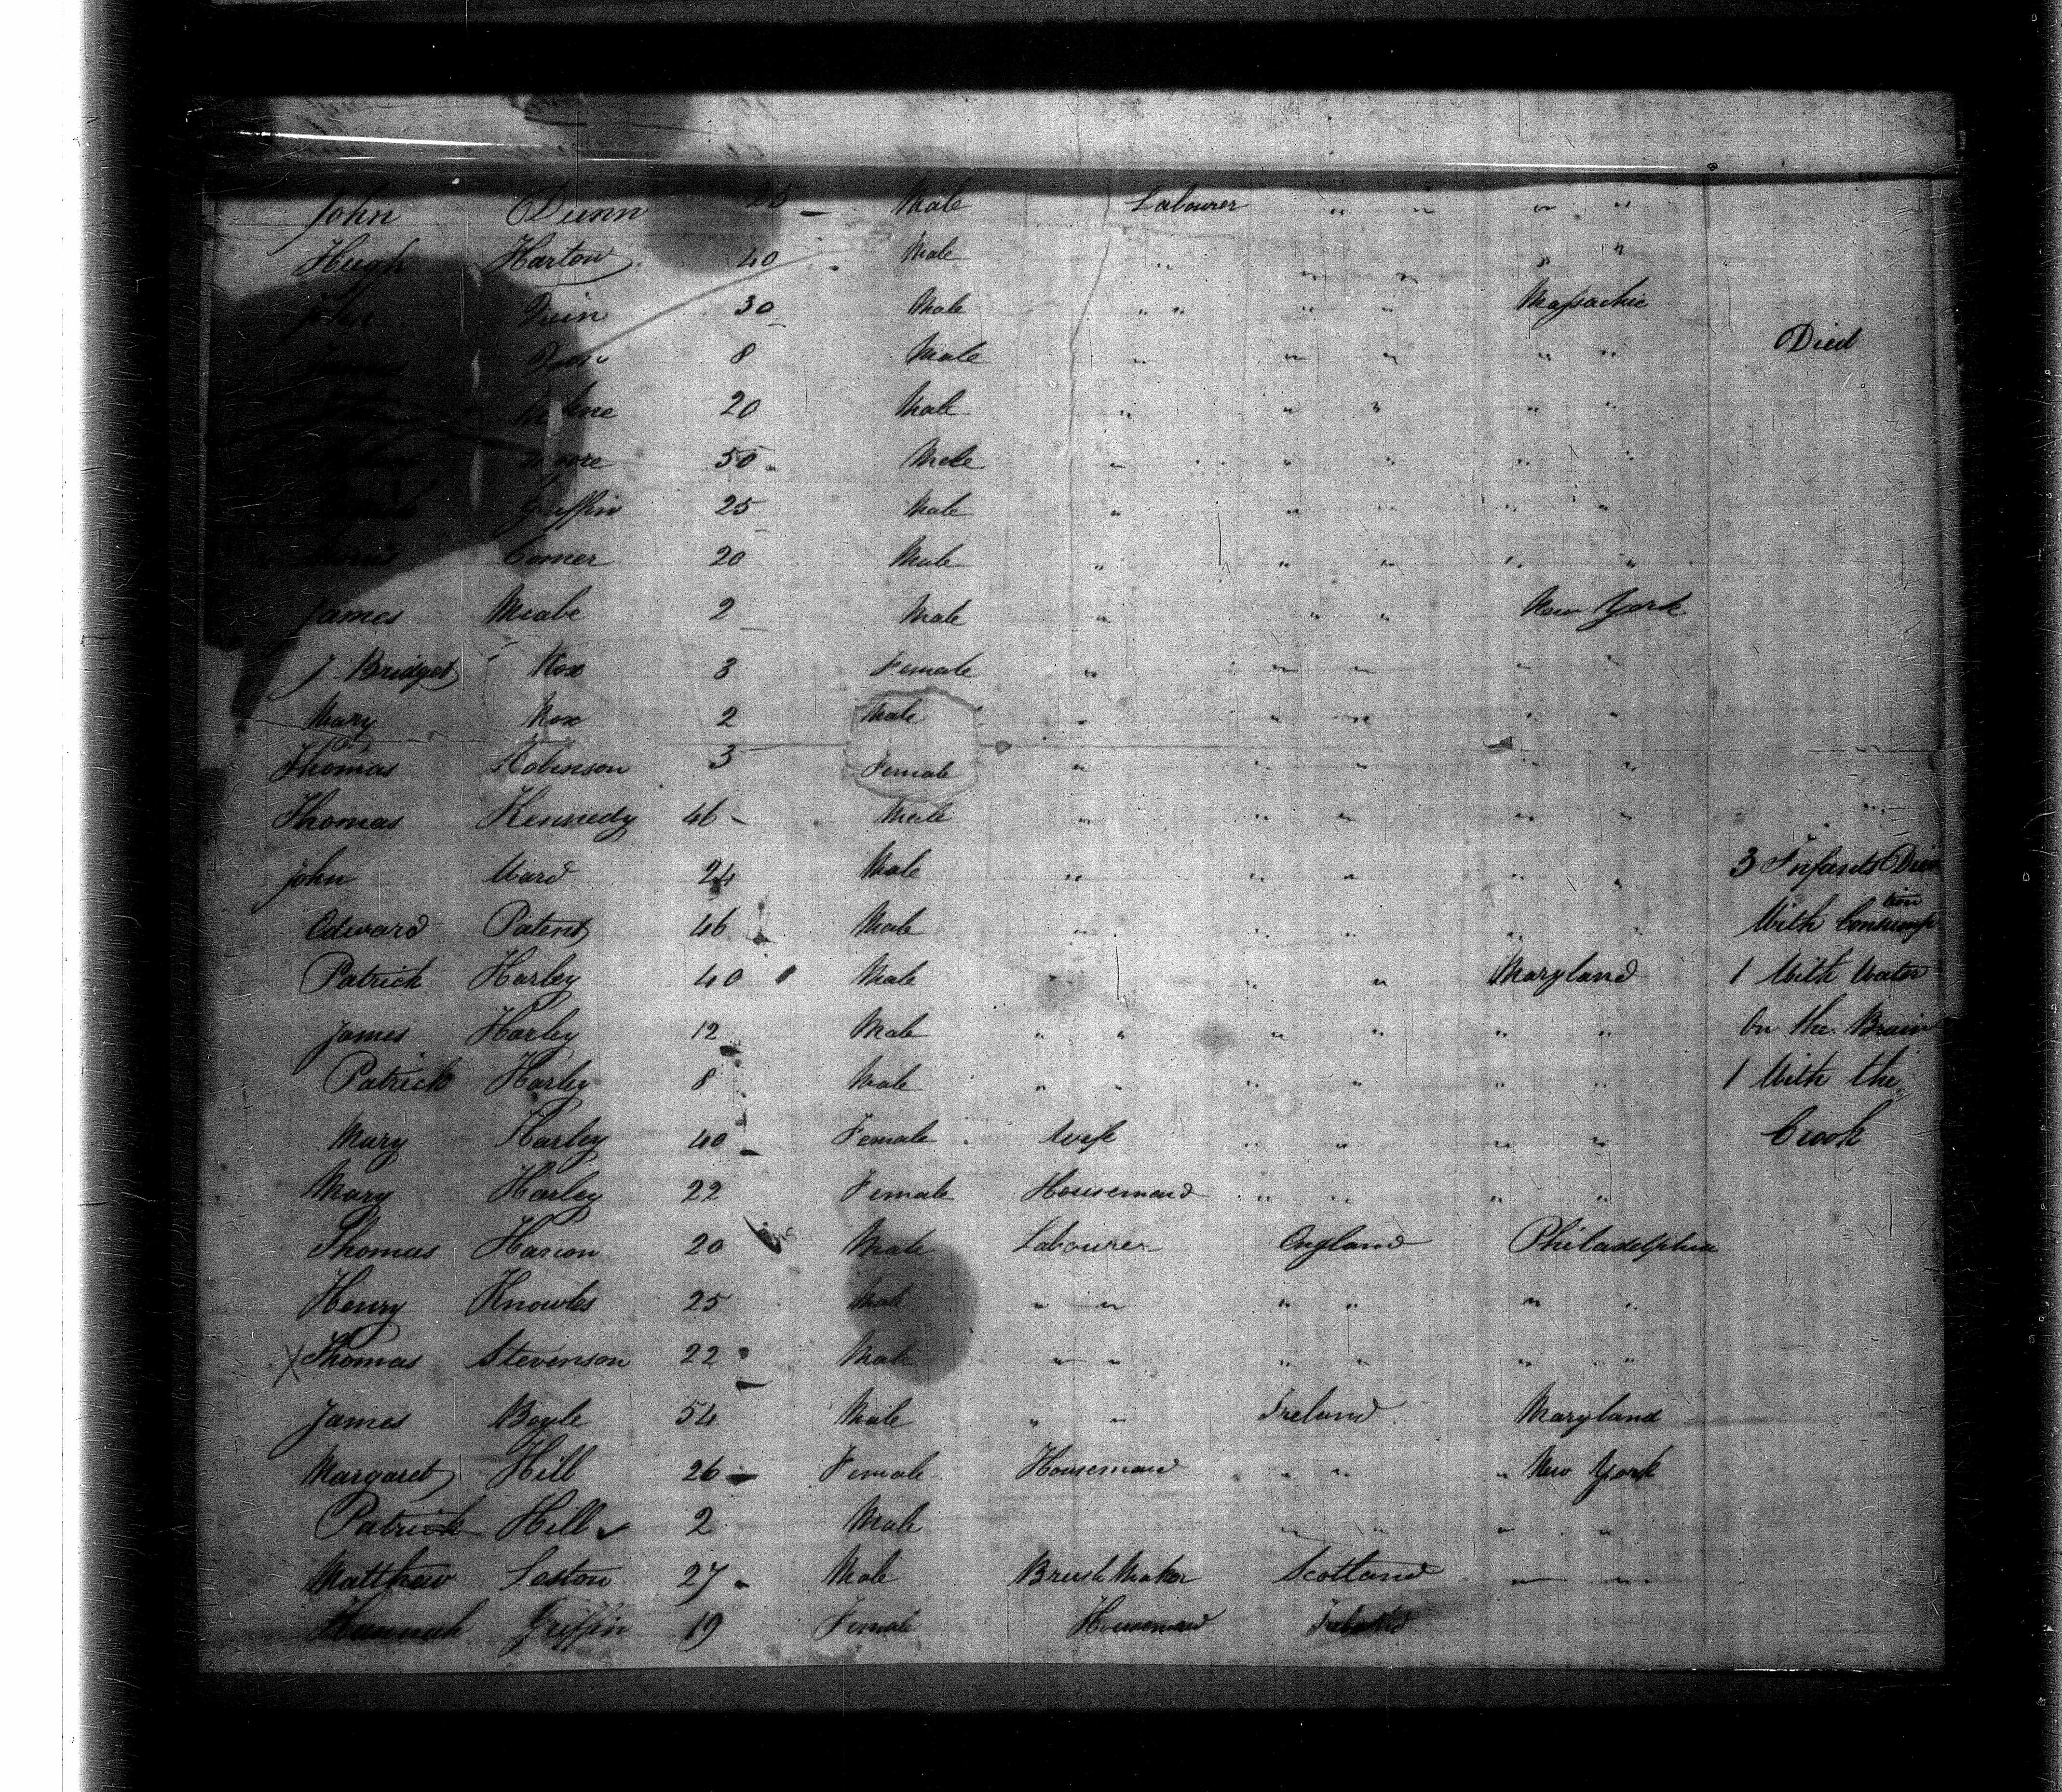 John Dunn 25 Male Labourer " " " "
Hugh Harton 40 Male " " " " "
John Quin 30 Male " " " " Massachu
James 8 Male " " " " " Died
20 Male " " " " "
Moore 50 Male " " " " "
Griffin 25 Male " " " " "
Comer 20 Male " " " " "
James Mcabe 2 Male " " " New York
J Bridget Kox 3 Female " " " " "
Mary Kox 2 Male " " " " "
Thomas Robinson 3 Female " " " " "
Thomas Kennedy 46 Male " " " " "
John Ward 24 Male " " " " " 3 Infants Died
Edward Patent 46 Male " " " " " With Consumption
Patrick Harley 40 Male " " " Maryland 1 With Water
James Harley 12 Male " " " " " " On the Brain
Patrick Harley 8 Male " " " " " " 1 With the
Mary Harley 40 Female Wife " " " " Crook
Mary Harley 22 Female Housemaid " " " "
Thomas Harion 20 Male Labourer England Philadelphia
Henry Knowles 25 Male " " " " " "
X Thomas Stevenson 22 Male " " " " " "
James Boyle 54 Male " " Ireland Maryland
Margaret Hill 26 Female Housemaid " " " New York
Patrick Hill 2 Male " " " "
Matthew Seston 27 Male Brush Maker Scotland " "
Hannah Griffin 19 Female Housemaid Ireland